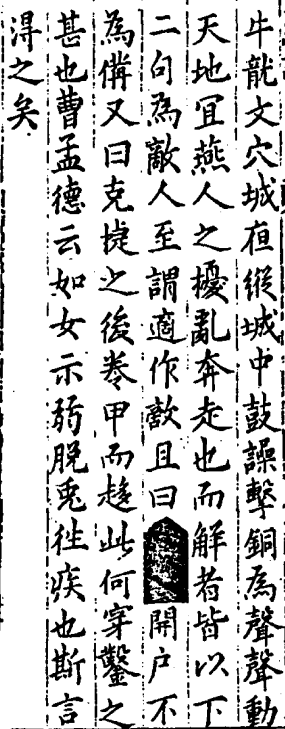 牛龍文穴城夜縱城中鼓譟擊銅為聲聲動
天地宜燕人之擾亂奔走也而解者皆以下
二句為敵人至謂適作敵且曰開户不
為備又曰克捷之後卷甲而趍此何穿鑿之
甚也曹孟德云如女示弱脫兎徃疾也斯言
淂之矣